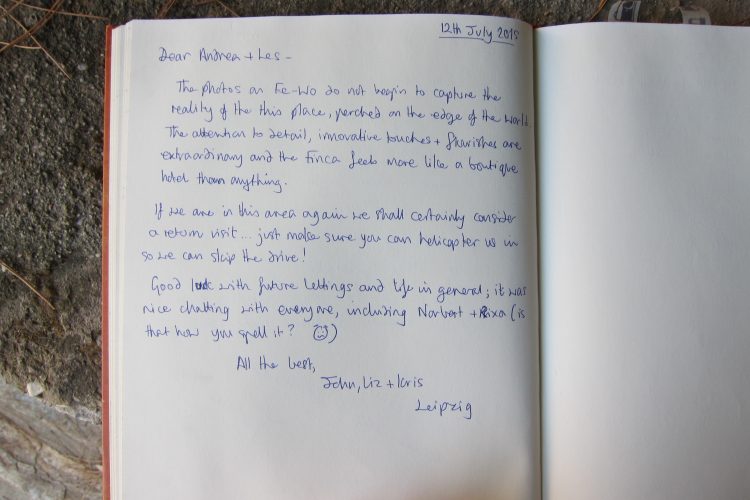 12th July 2015
Dear Andrea + Les -
The photos on Fe-Wo do not begin to capture the
reality of the this place, perched on the edge of the world.
The attention to detail, innovative touches + flourishes are
extraordinary and the Finca feels more like a boutique
hotel than anything.
If we are in this area again we shall certainly consider
a return visit... just make sure you can helicopter us in
so we can skip the drive!
Good luck with future lettings and life in general; it was
nice chatting with everyone, including Norbert + Rixa (is
that how you spell it? ☺)
All the best,
John, Liz + Kris
Leipzig